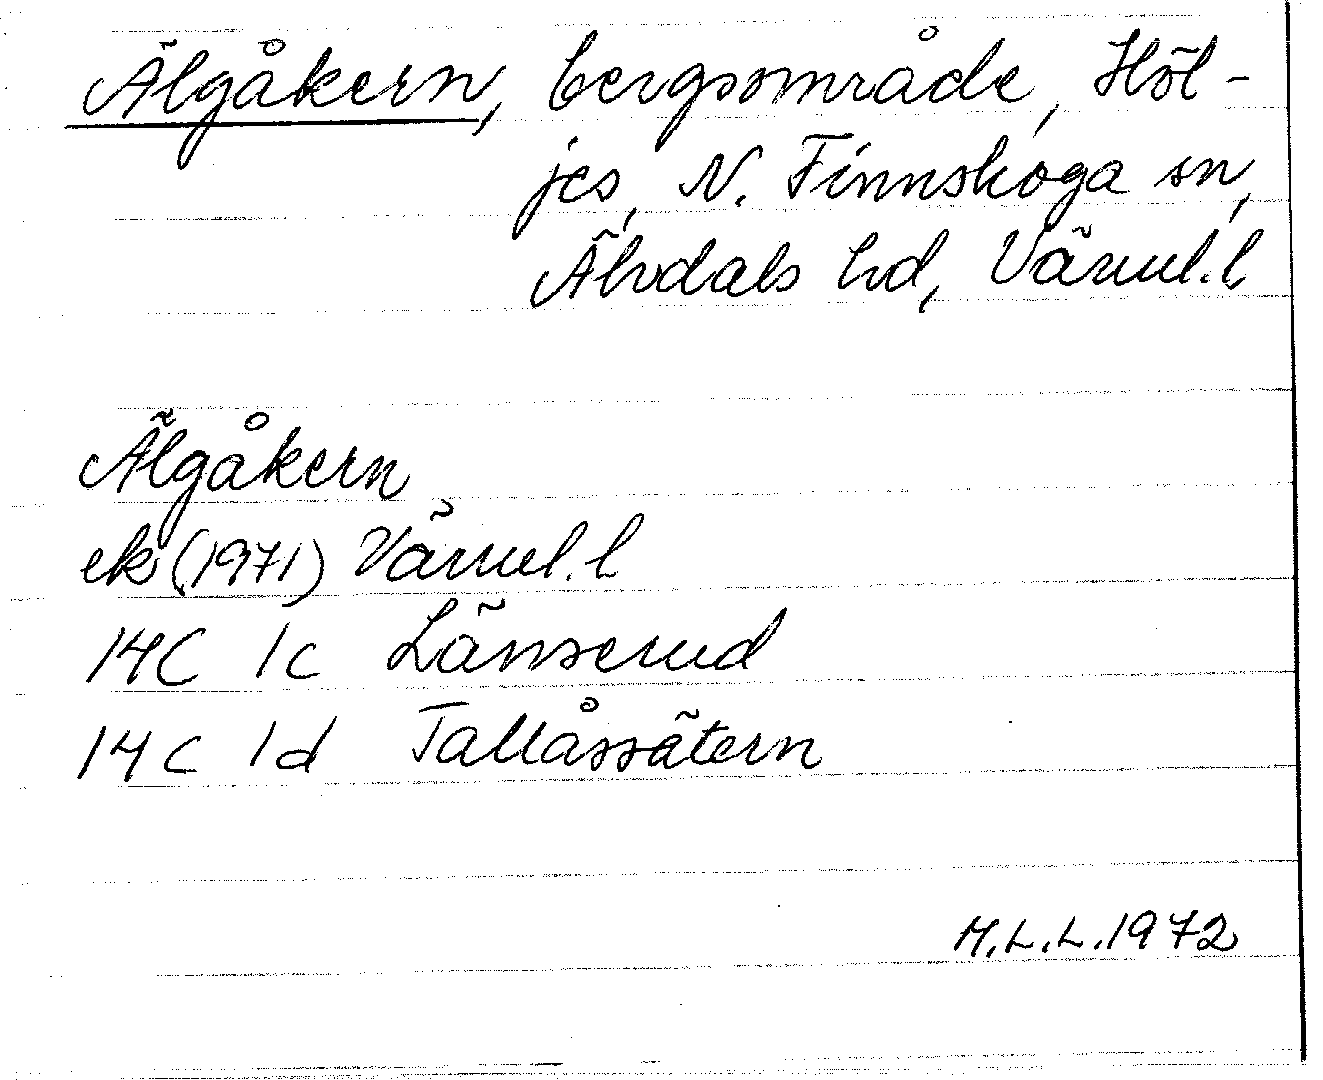 Älgåkern, bergsområde, Höl-
jes, N. Finnskoga sn,
Älvdals hd, Värml. l
Älgåkern
ek (1971) Värml. l
14C 1c Länserud
14C 1d Tallåssätern
M.L.L. 1972